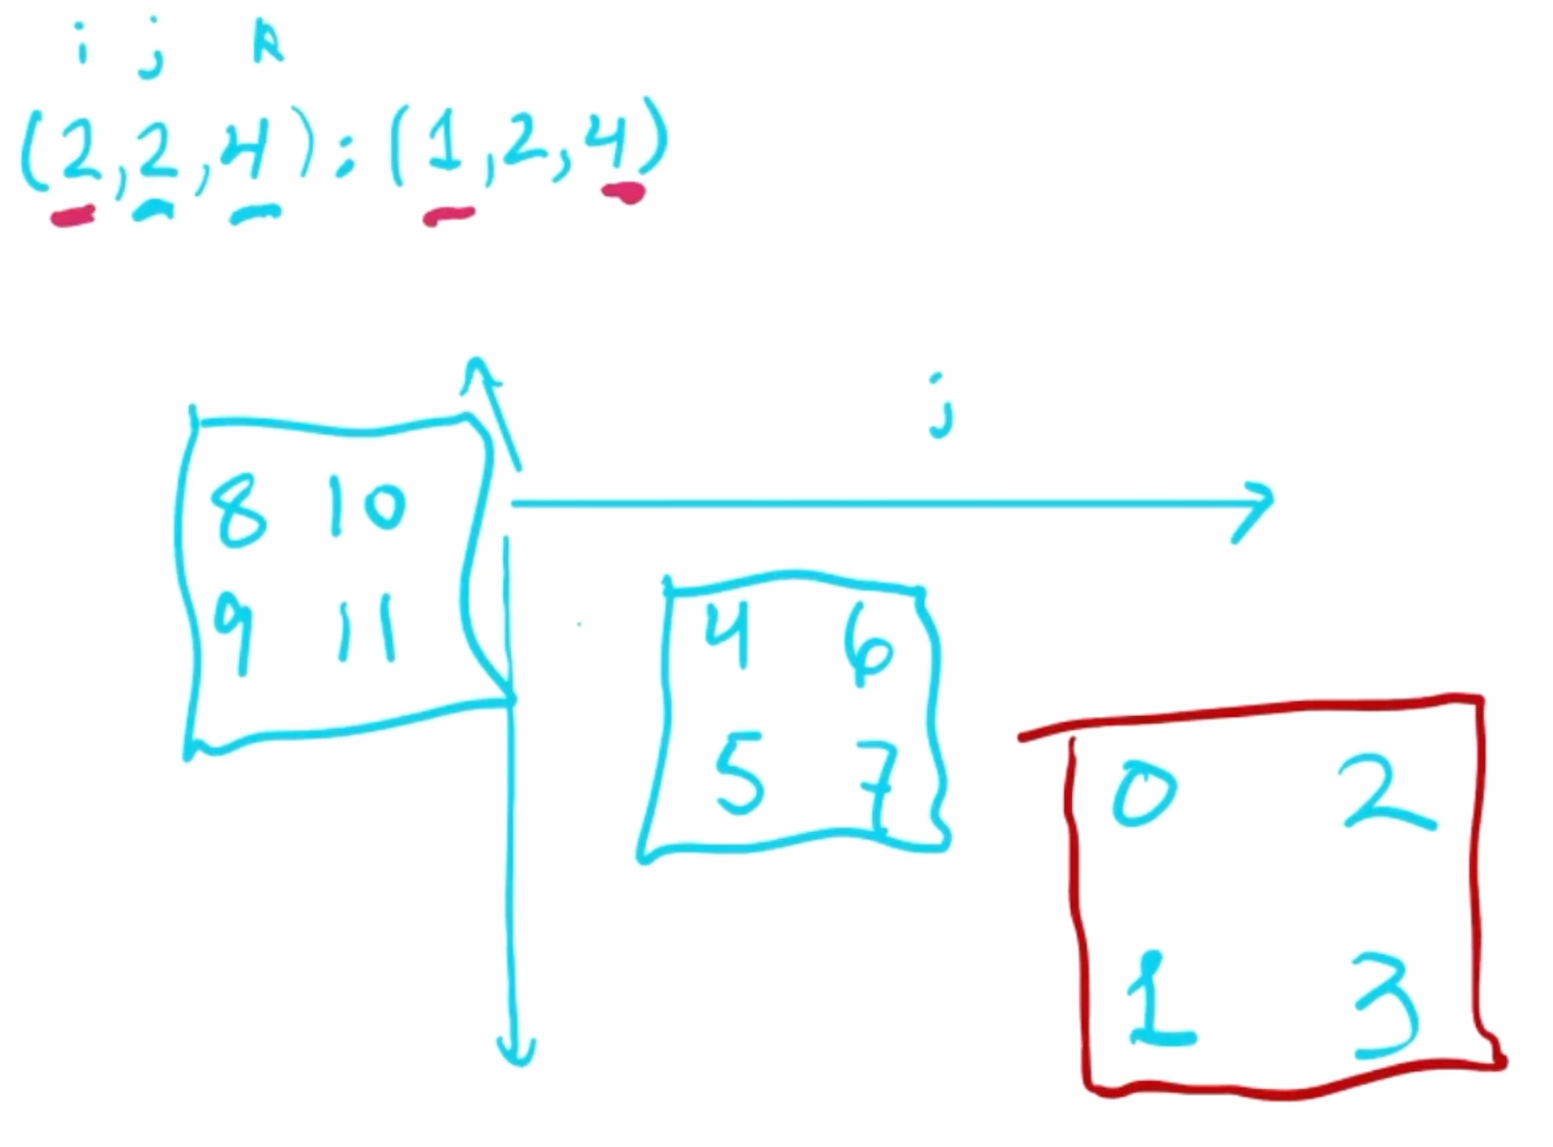 i j k
(2,2,4):(1,2,4)
j
8 10
9 11
4 6
5 7
0 2
1 3